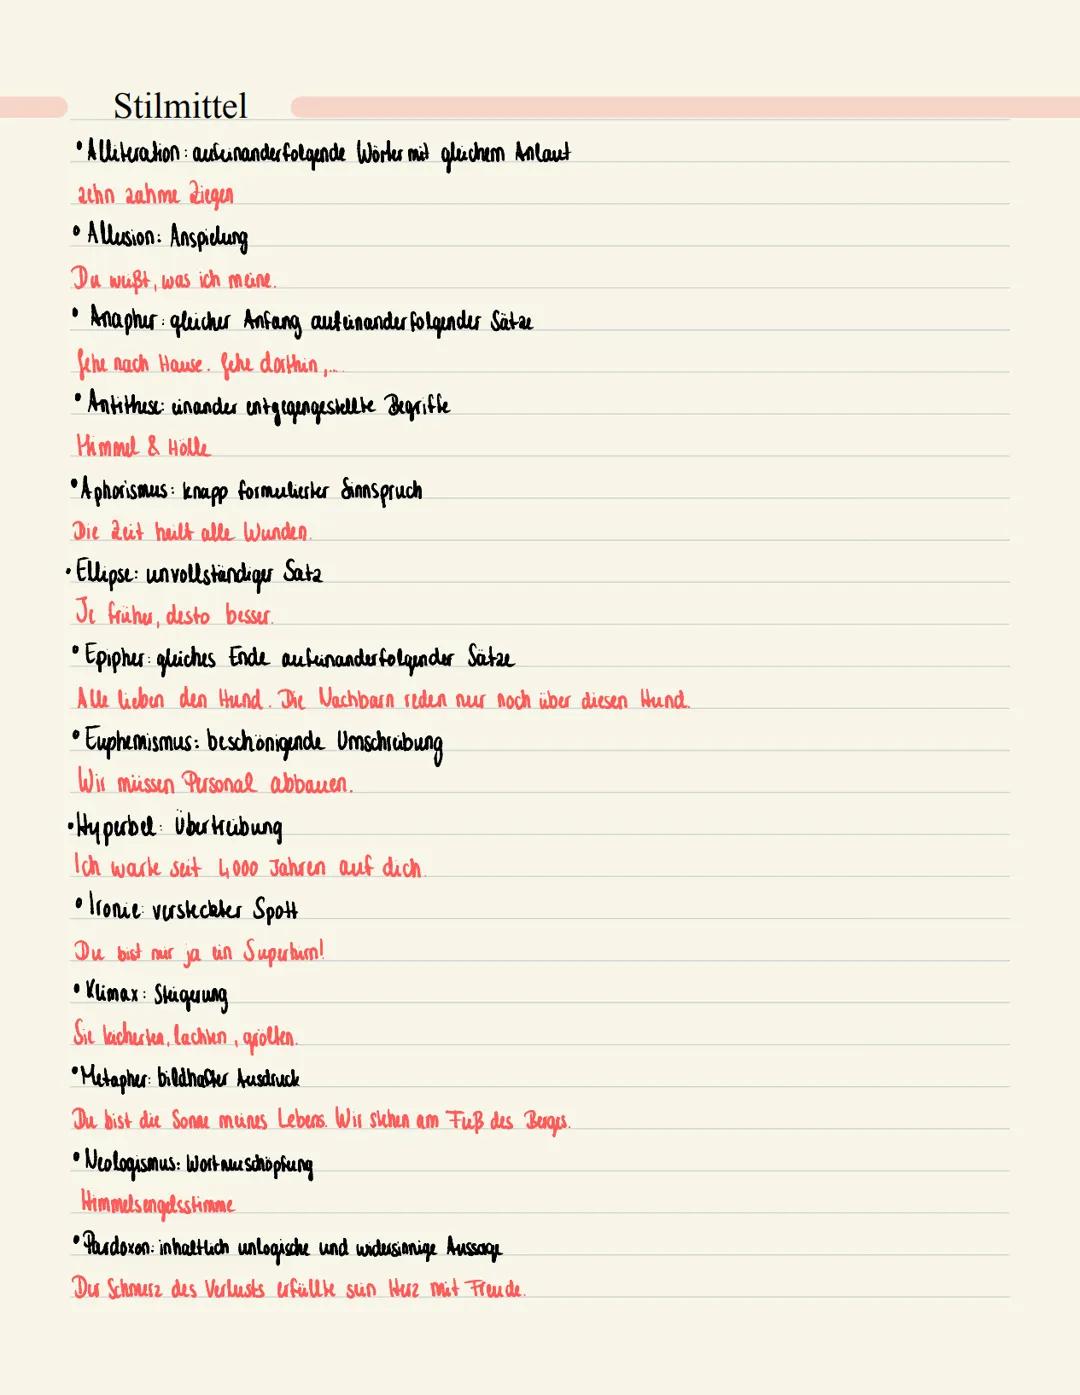 Stilmittel
• Alliteration: aufeinanderfolgende Wörter mit gleichem Anlaut
zehn zahme Ziegen
• Allusion: Anspielung
Du weißt, was ich meine.
• Anapher: gleicher Anfang aufeinanderfolgender Sätze
Gehe nach Hause. Gehe dorthin,...
• Antithese: einander entgegengestellte Begriffe
Himmel & Hölle
• Aphorismus: knapp formulierter Sinnspruch
Die Zeit heilt alle Wunden.
• Ellipse: unvollständiger Satz
Je früher, desto besser.
• Epipher: gleiches Ende aufeinanderfolgender Sätze
Alle lieben den Hund. Die Nachbarn reden nur noch über diesen Hund.
• Euphemismus: beschönigende Umschreibung
Wir müssen Personal abbauen.
• Hyperbel: Übertreibung
Ich warte seit 4000 Jahren auf dich.
• Ironie: versteckter Spott
Du bist mir ja ein Superhirn!
• Klimax: Steigerung
Sie kicherten, lachten, grölten.
• Metapher: bildhafter Ausdruck
Du bist die Sonne meines Lebens. Wir stehen am Fuß des Berges.
• Neologismus: Wortneuschöpfung
Himmelsengelsstimme
• Pardoxon: inhaltlich unlogische und widersinnige Aussage
Der Schmerz des Verlusts erfüllte sein Herz mit Freude.